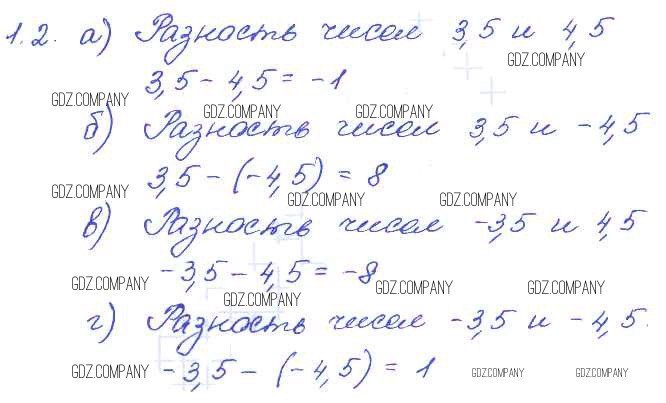 1.2. а) Разность чисел 3,5 и 4,5
GDZ.COMPANY
3,5 - 4,5 = -1
GDZ.COMPANY GDZ.COMPANY GDZ.COMPANY
б) Разность чисел 3,5 и -4,5
3,5 - (-4,5) = 8
GDZ.COMPANY GDZ.COMPANY GDZ.COMPANY
в) Разность чисел -3,5 и 4,5
-3,5 - 4,5 = -8
GDZ.COMPANY GDZ.COMPANY GDZ.COMPANY GDZ.COMPANY
г) Разность чисел -3,5 и -4,5.
-3,5 - (-4,5) = 1
GDZ.COMPANY GDZ.COMPANY GDZ.COMPANY